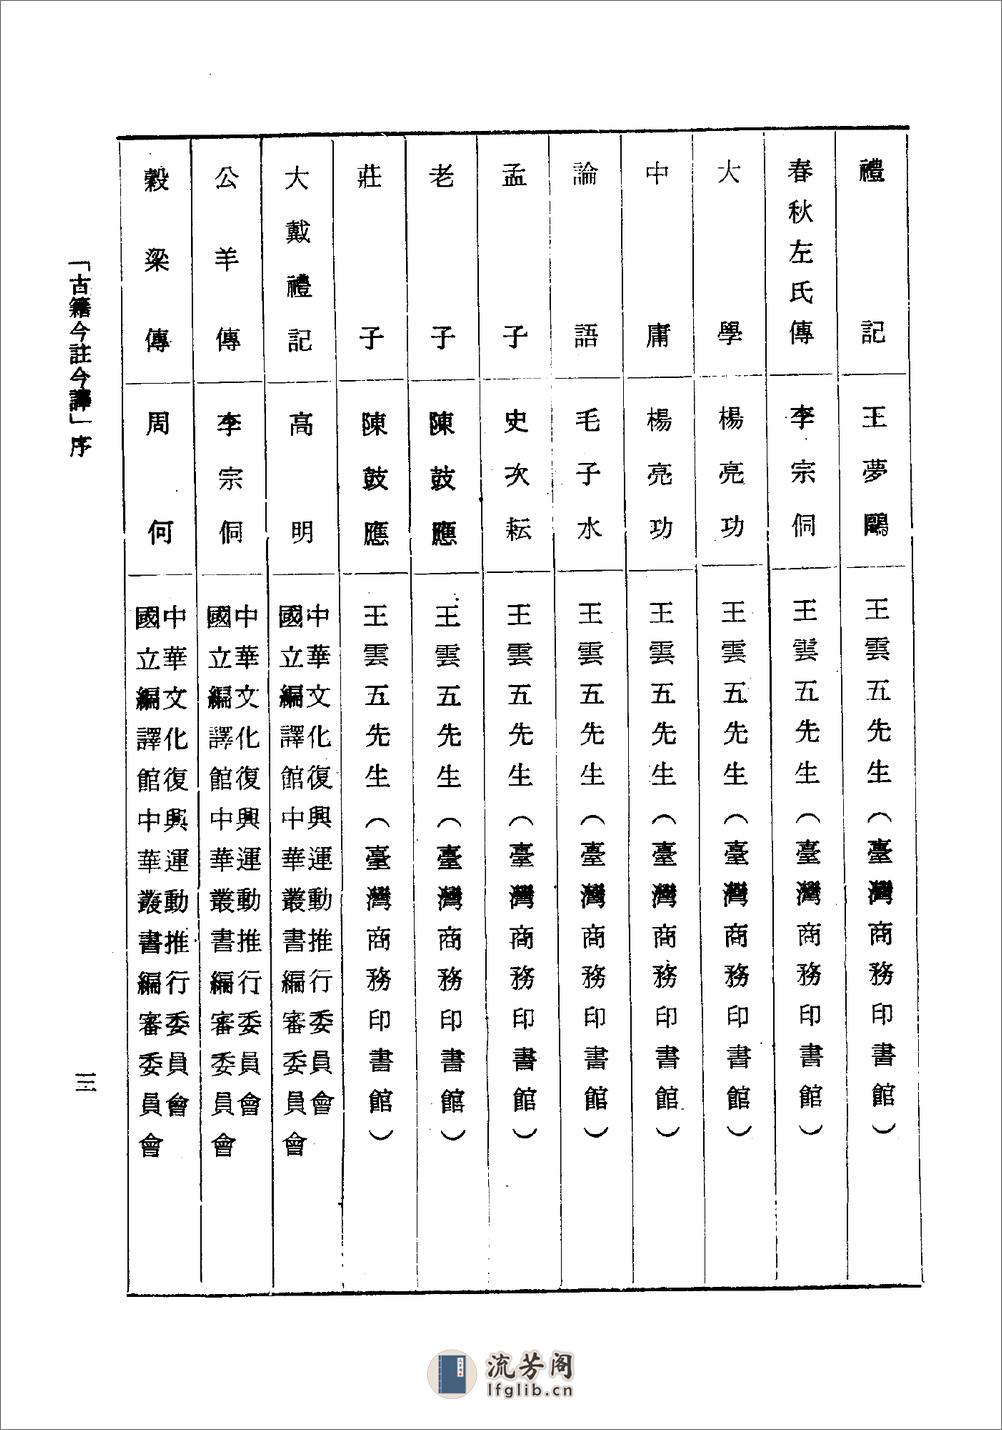 禮記 王夢鷗 王雲五先生（臺灣商務印書館）
春秋左氏傳 李宗侗 王雲五先生（臺灣商務印書館）
大學 楊亮功 王雲五先生（臺灣商務印書館）
中庸 楊亮功 王雲五先生（臺灣商務印書館）
論語 毛子水 王雲五先生（臺灣商務印書館）
孟子 史次耘 王雲五先生（臺灣商務印書館）
老子 陳鼓應 王雲五先生（臺灣商務印書館）
莊子 陳鼓應 王雲五先生（臺灣商務印書館）
大戴禮記 高明 中華文化復興運動推行委員會
國立編譯館中華叢書編審委員會
公羊傳 李宗侗 中華文化復興運動推行委員會
國立編譯館中華叢書編審委員會
穀梁傳 周何 中華文化復興運動推行委員會
國立編譯館中華叢書編審委員會
「古籍今註今譯」序
三
流芳阁
lfglib.cn